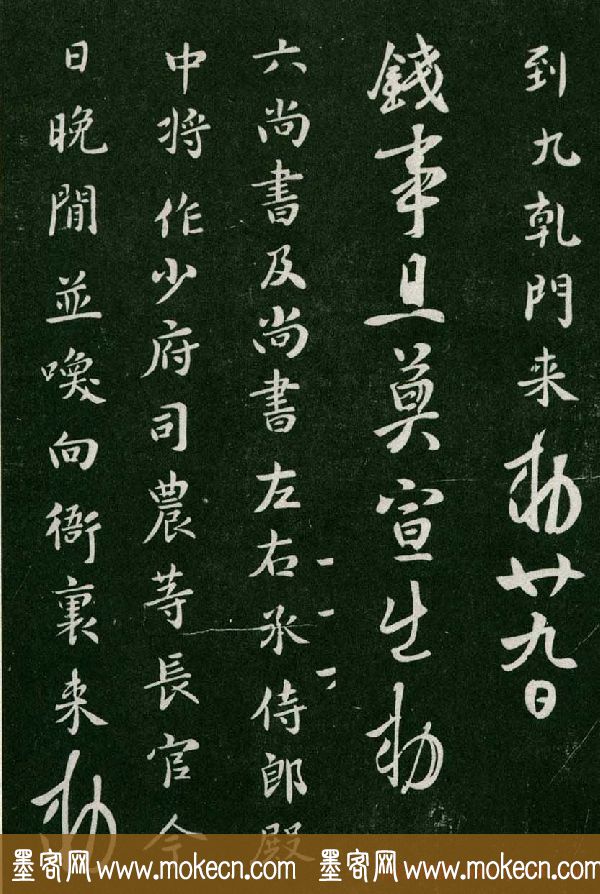 到九軋門来勅廿九日
錢事且莫宣出勅
六尚書及尚書左右丞侍郎殿
中將作少府司農等長官今
日晚間並喚向衙裏来勅
墨客网 www.mokecn.com 墨客网 www.mokecn.com